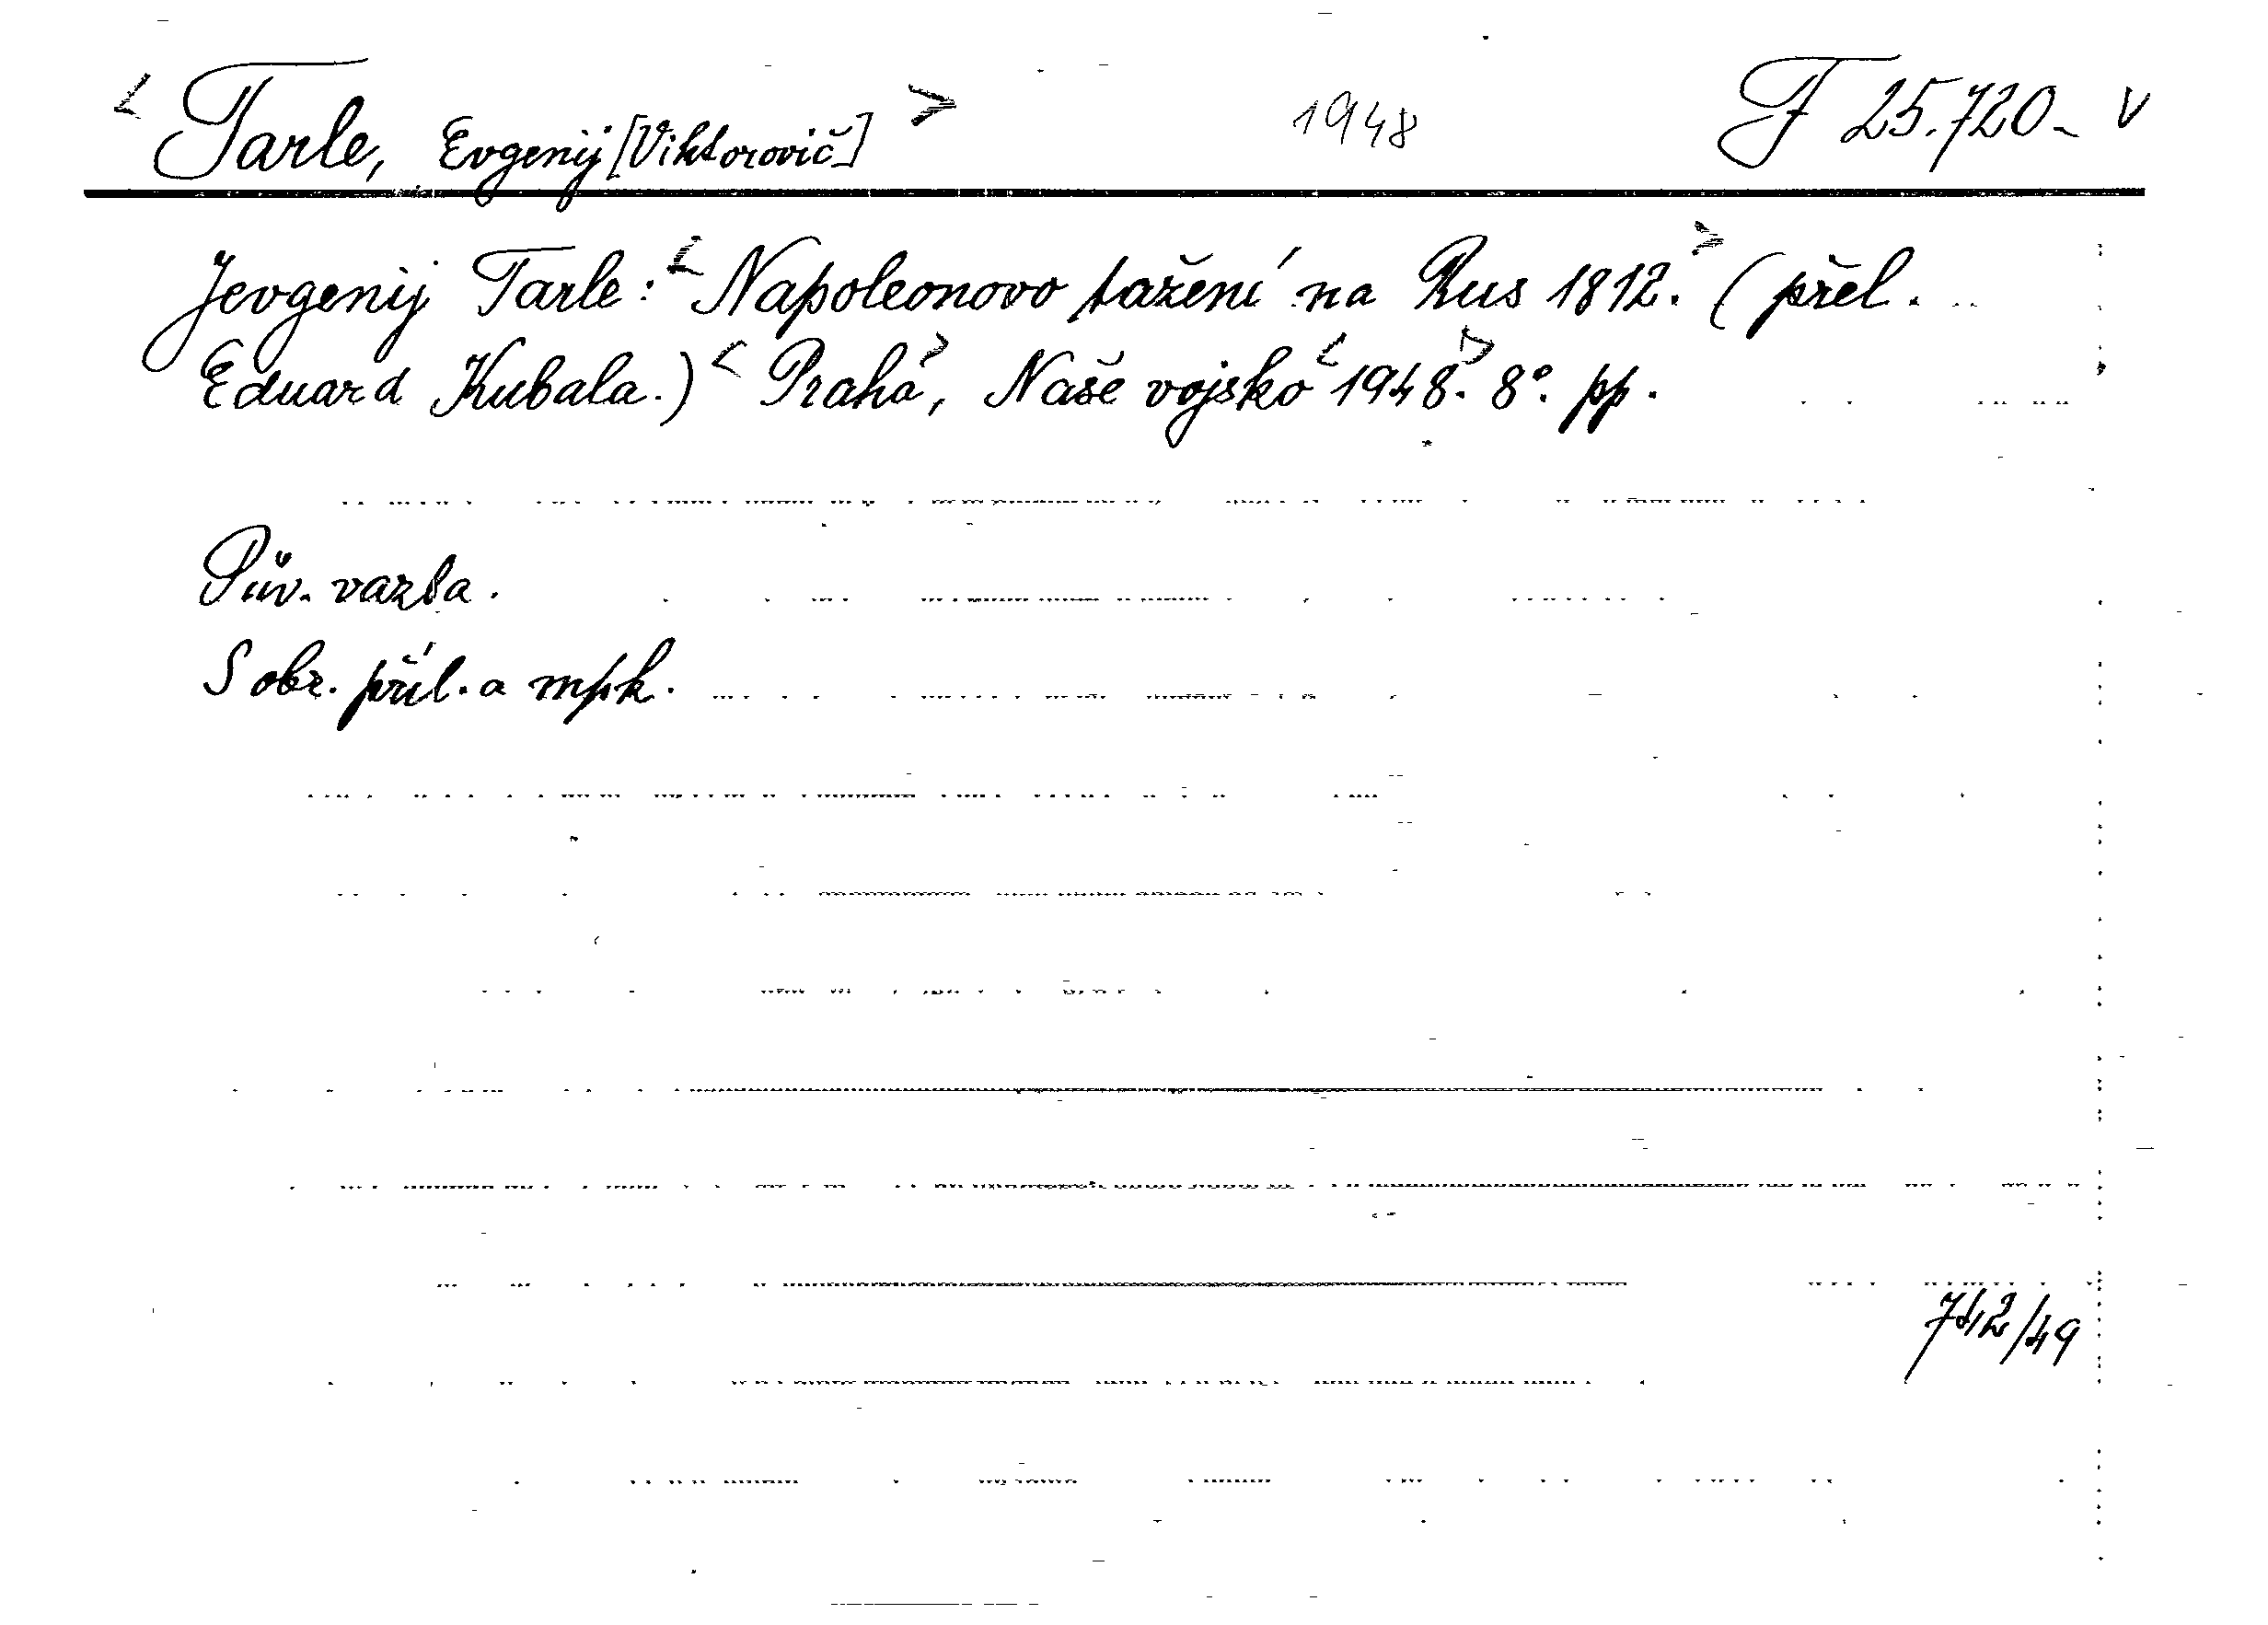 < Tarle, Evgenij [Viktorovič] > 1948 F 25.720 - v
Jevgenij Tarle: < Napoleonovo tažení na Rus 1812. > (přel.
Eduard Kubala.) < Praha >, Naše vojsko < 1948. > 8°. pp.
Pův. vazba.
S obr. příl. a mpk.
742/49